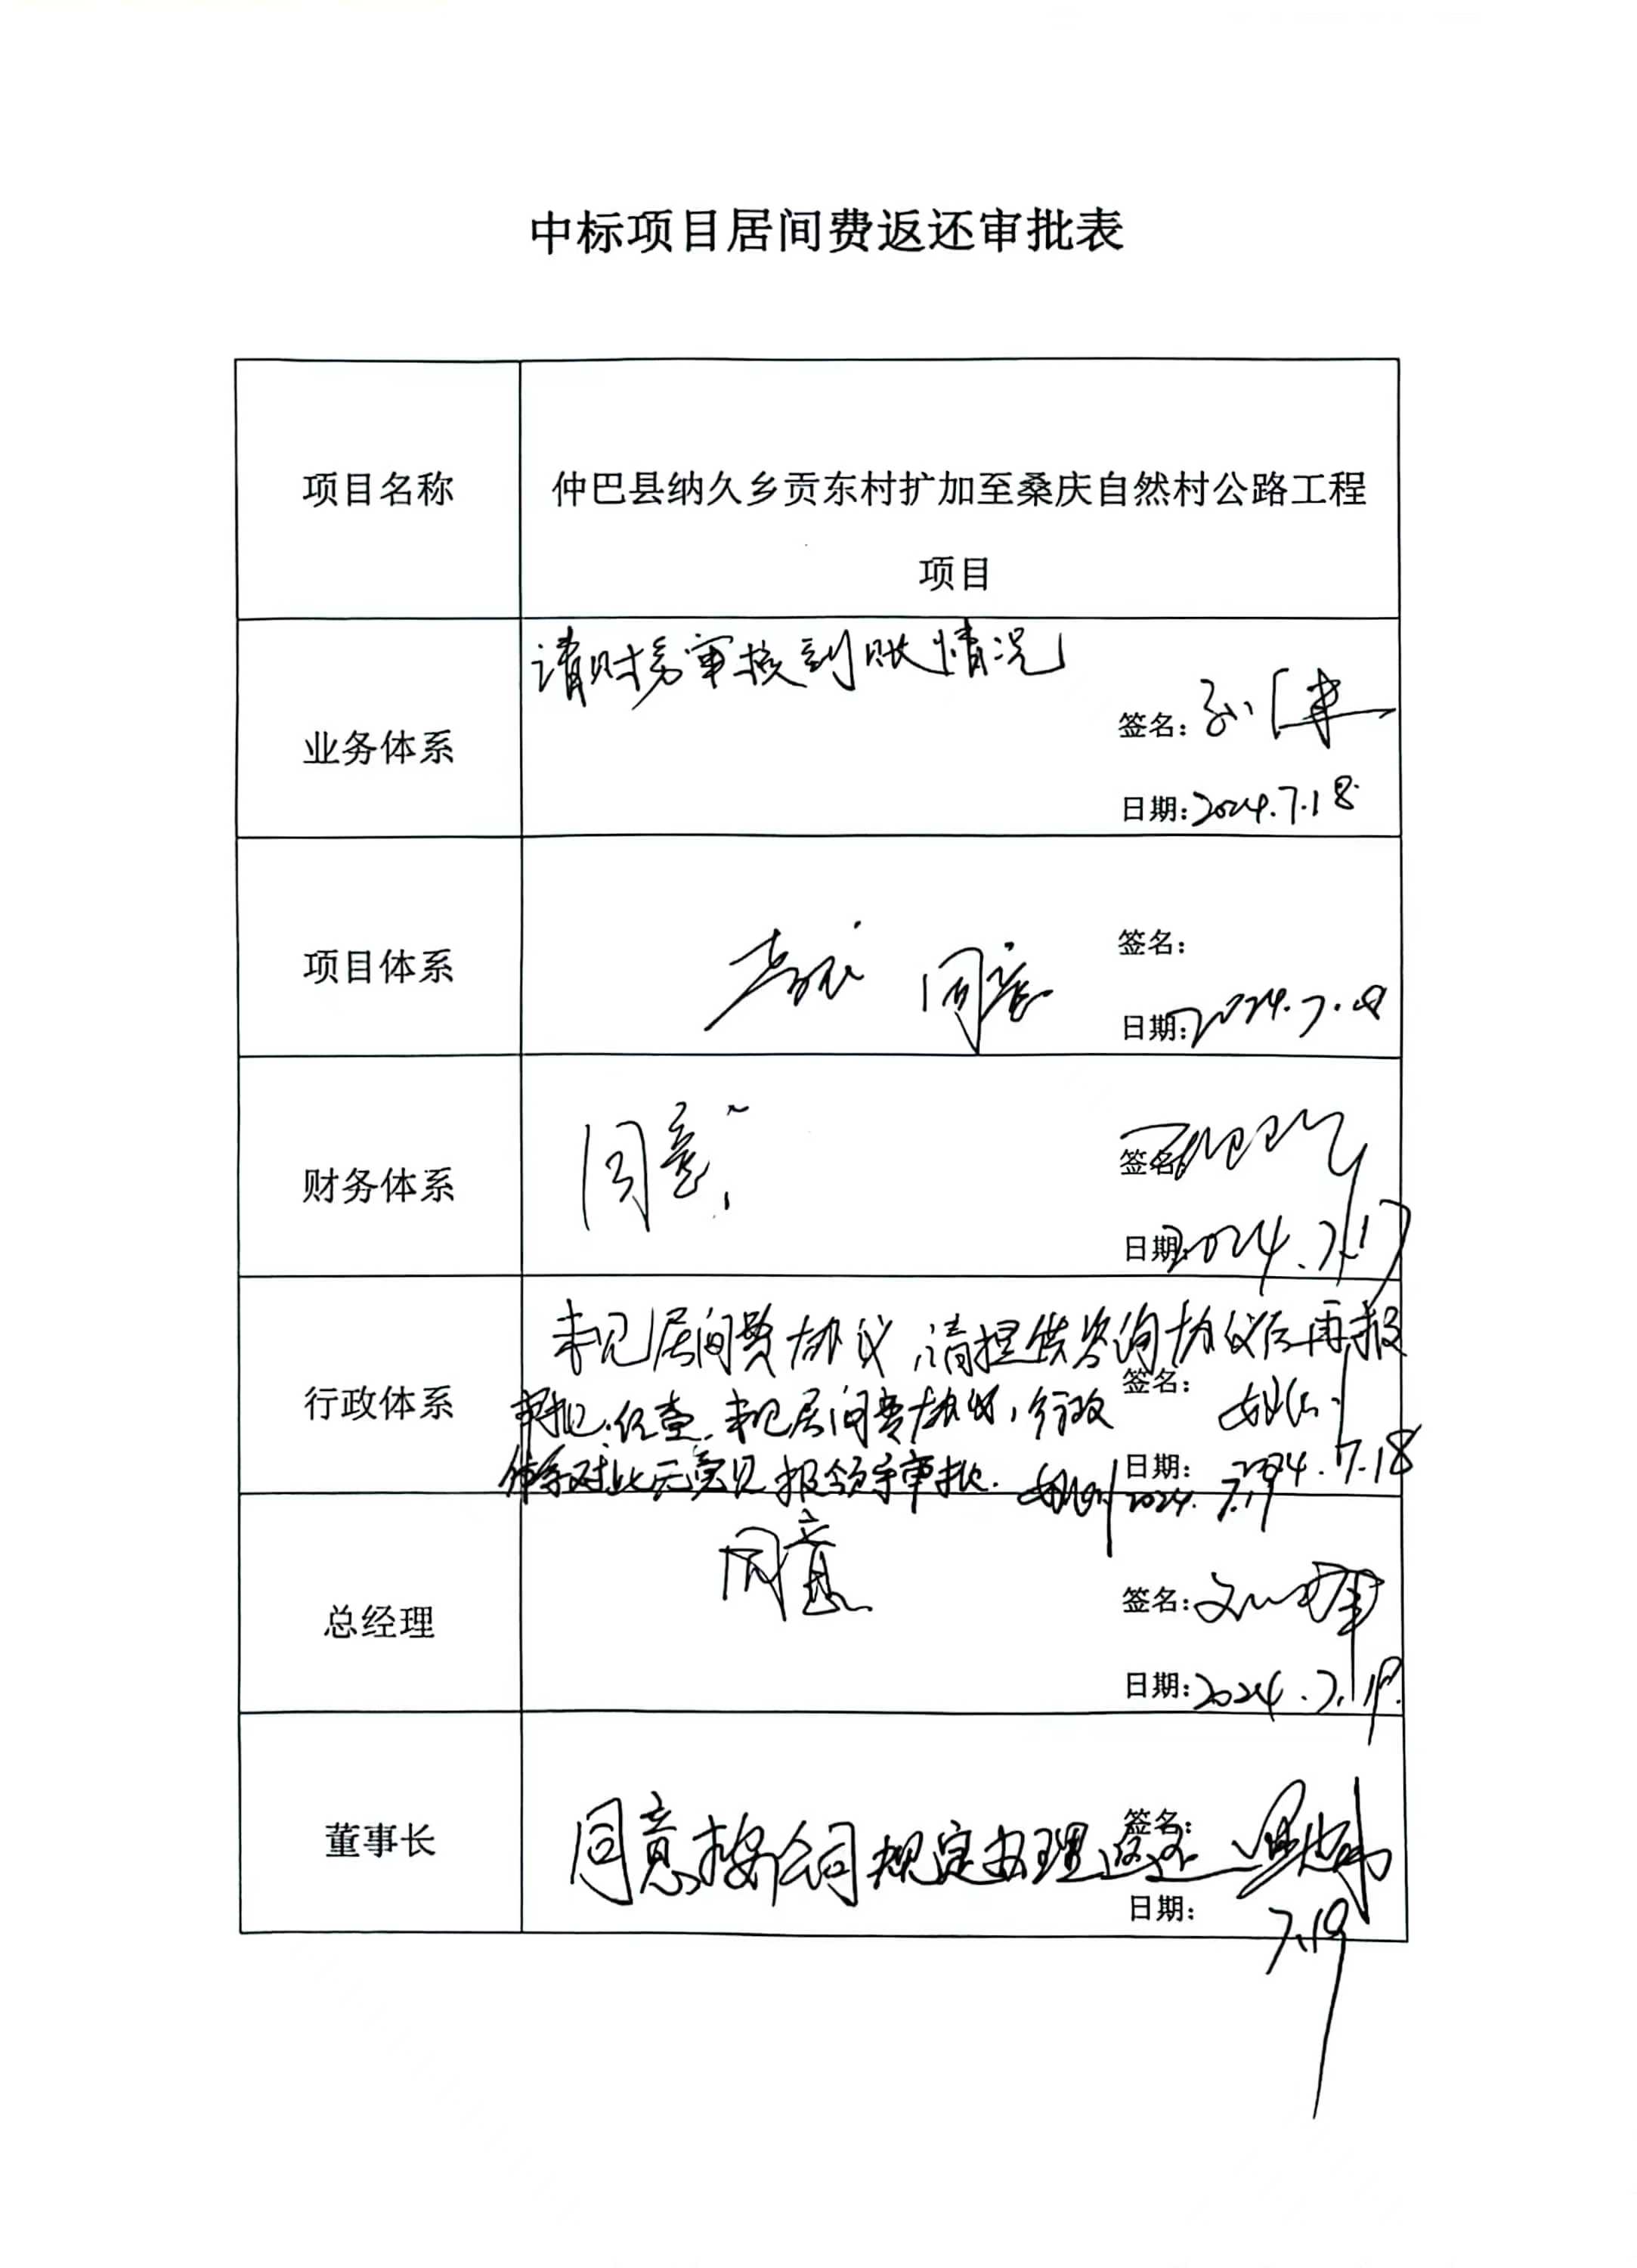 中标项目居间费返还审批表
项目名称
仲巴县纳久乡贡东村扩加至桑庆自然村公路工程
项目
业务体系
请财务审核到账情况
签名：
日期：2024.7.18
项目体系
同意
签名：
日期：2024.7.18
财务体系
同意
签名：
日期：2024.7.17
行政体系
未见居间费协议，请提供咨询协议后再报
审批。经查，未见居间费协议，行政
体系对此无意见，报领导审批。
签名：
日期：2024.7.18
2024.7.19
总经理
同意
签名：
日期：2024.7.19.
董事长
同意按公司规定办理返还
签名：
日期：
7.19